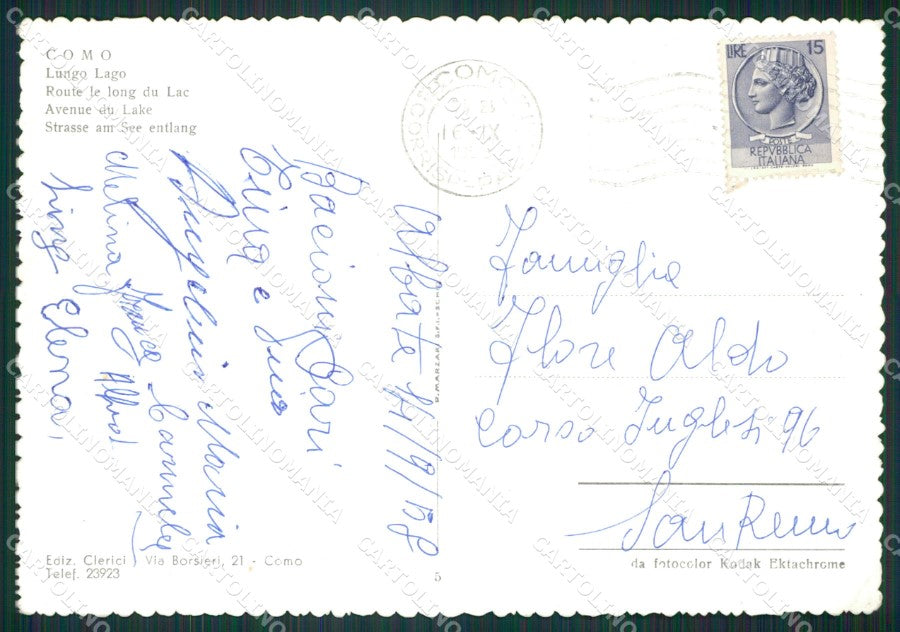 COMO
Lungo Lago
Route le long du Lac
Avenue du Lake
Strasse am See entlang
LIRE 15
POSTE
REPVBBLICA
ITALIANA
COMO
Albate 11/9/58
Bacioni Cari
Tina e
Maria
Carmela
Melina
Elena
Famiglia
Flore Aldo
Corso Inglesi 96
San Remo
Ediz. Clerici Via Borsieri, 21 - Como
Telef. 23923
5
da fotocolor Kodak Ektachrome
CARTOLINOMANIA